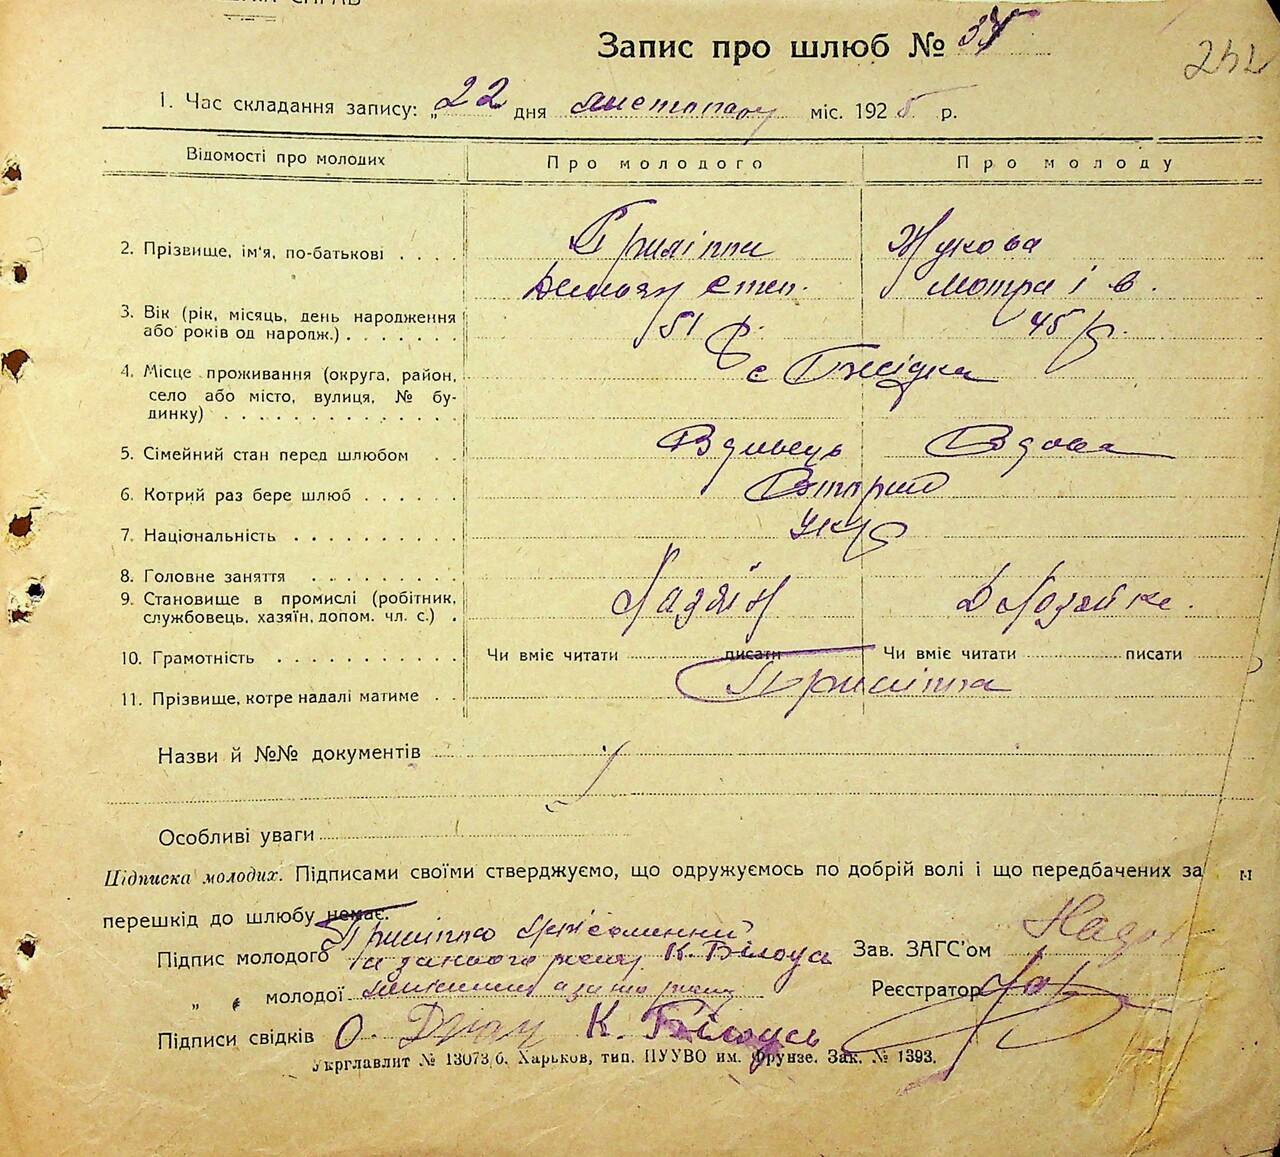 Запис про шлюб №
252
1. Час складання запису: „22 дня листопаду міс. 1925 р.
Відомості про молодих Про молодого Про молоду
2. Прізвище, ім'я, по-батькові Жукова
Демьян Степ. Мотра Ів.
3. Вік (рік, місяць, день народження 51 р. 45 р.
або років од народж.)
4. Місце проживання (округа, район, с
село або місто, вулиця, № бу-
динку)
5. Сімейний стан перед шлюбом Вдивець Вдова
6. Котрий раз бере шлюб Вторий
7. Національність Укр
8. Головне заняття
9. Становище в промислі (робітник, Хазяїн Д Хозяйка.
службовець, хазяїн, допом. чл. с.)
10. Грамотність Чи вміє читати писати Чи вміє читати писати
11. Прізвище, котре надалі матиме
Назви й №№ документів
Особливі уваги
Підписка молодих. Підписами своїми стверджуємо, що одружуємось по добрій волі і що передбачених за м
перешкід до шлюбу немає.
Підпис молодого К. Білоусь Зав. ЗАГС'ом
„ „ молодої Реєстратор
Підписи свідків О. К. Білоусь
Укрглавлит № 13073/б. Харьков, тип. ПУУВО им. Фрунзе. Зак. № 1393.